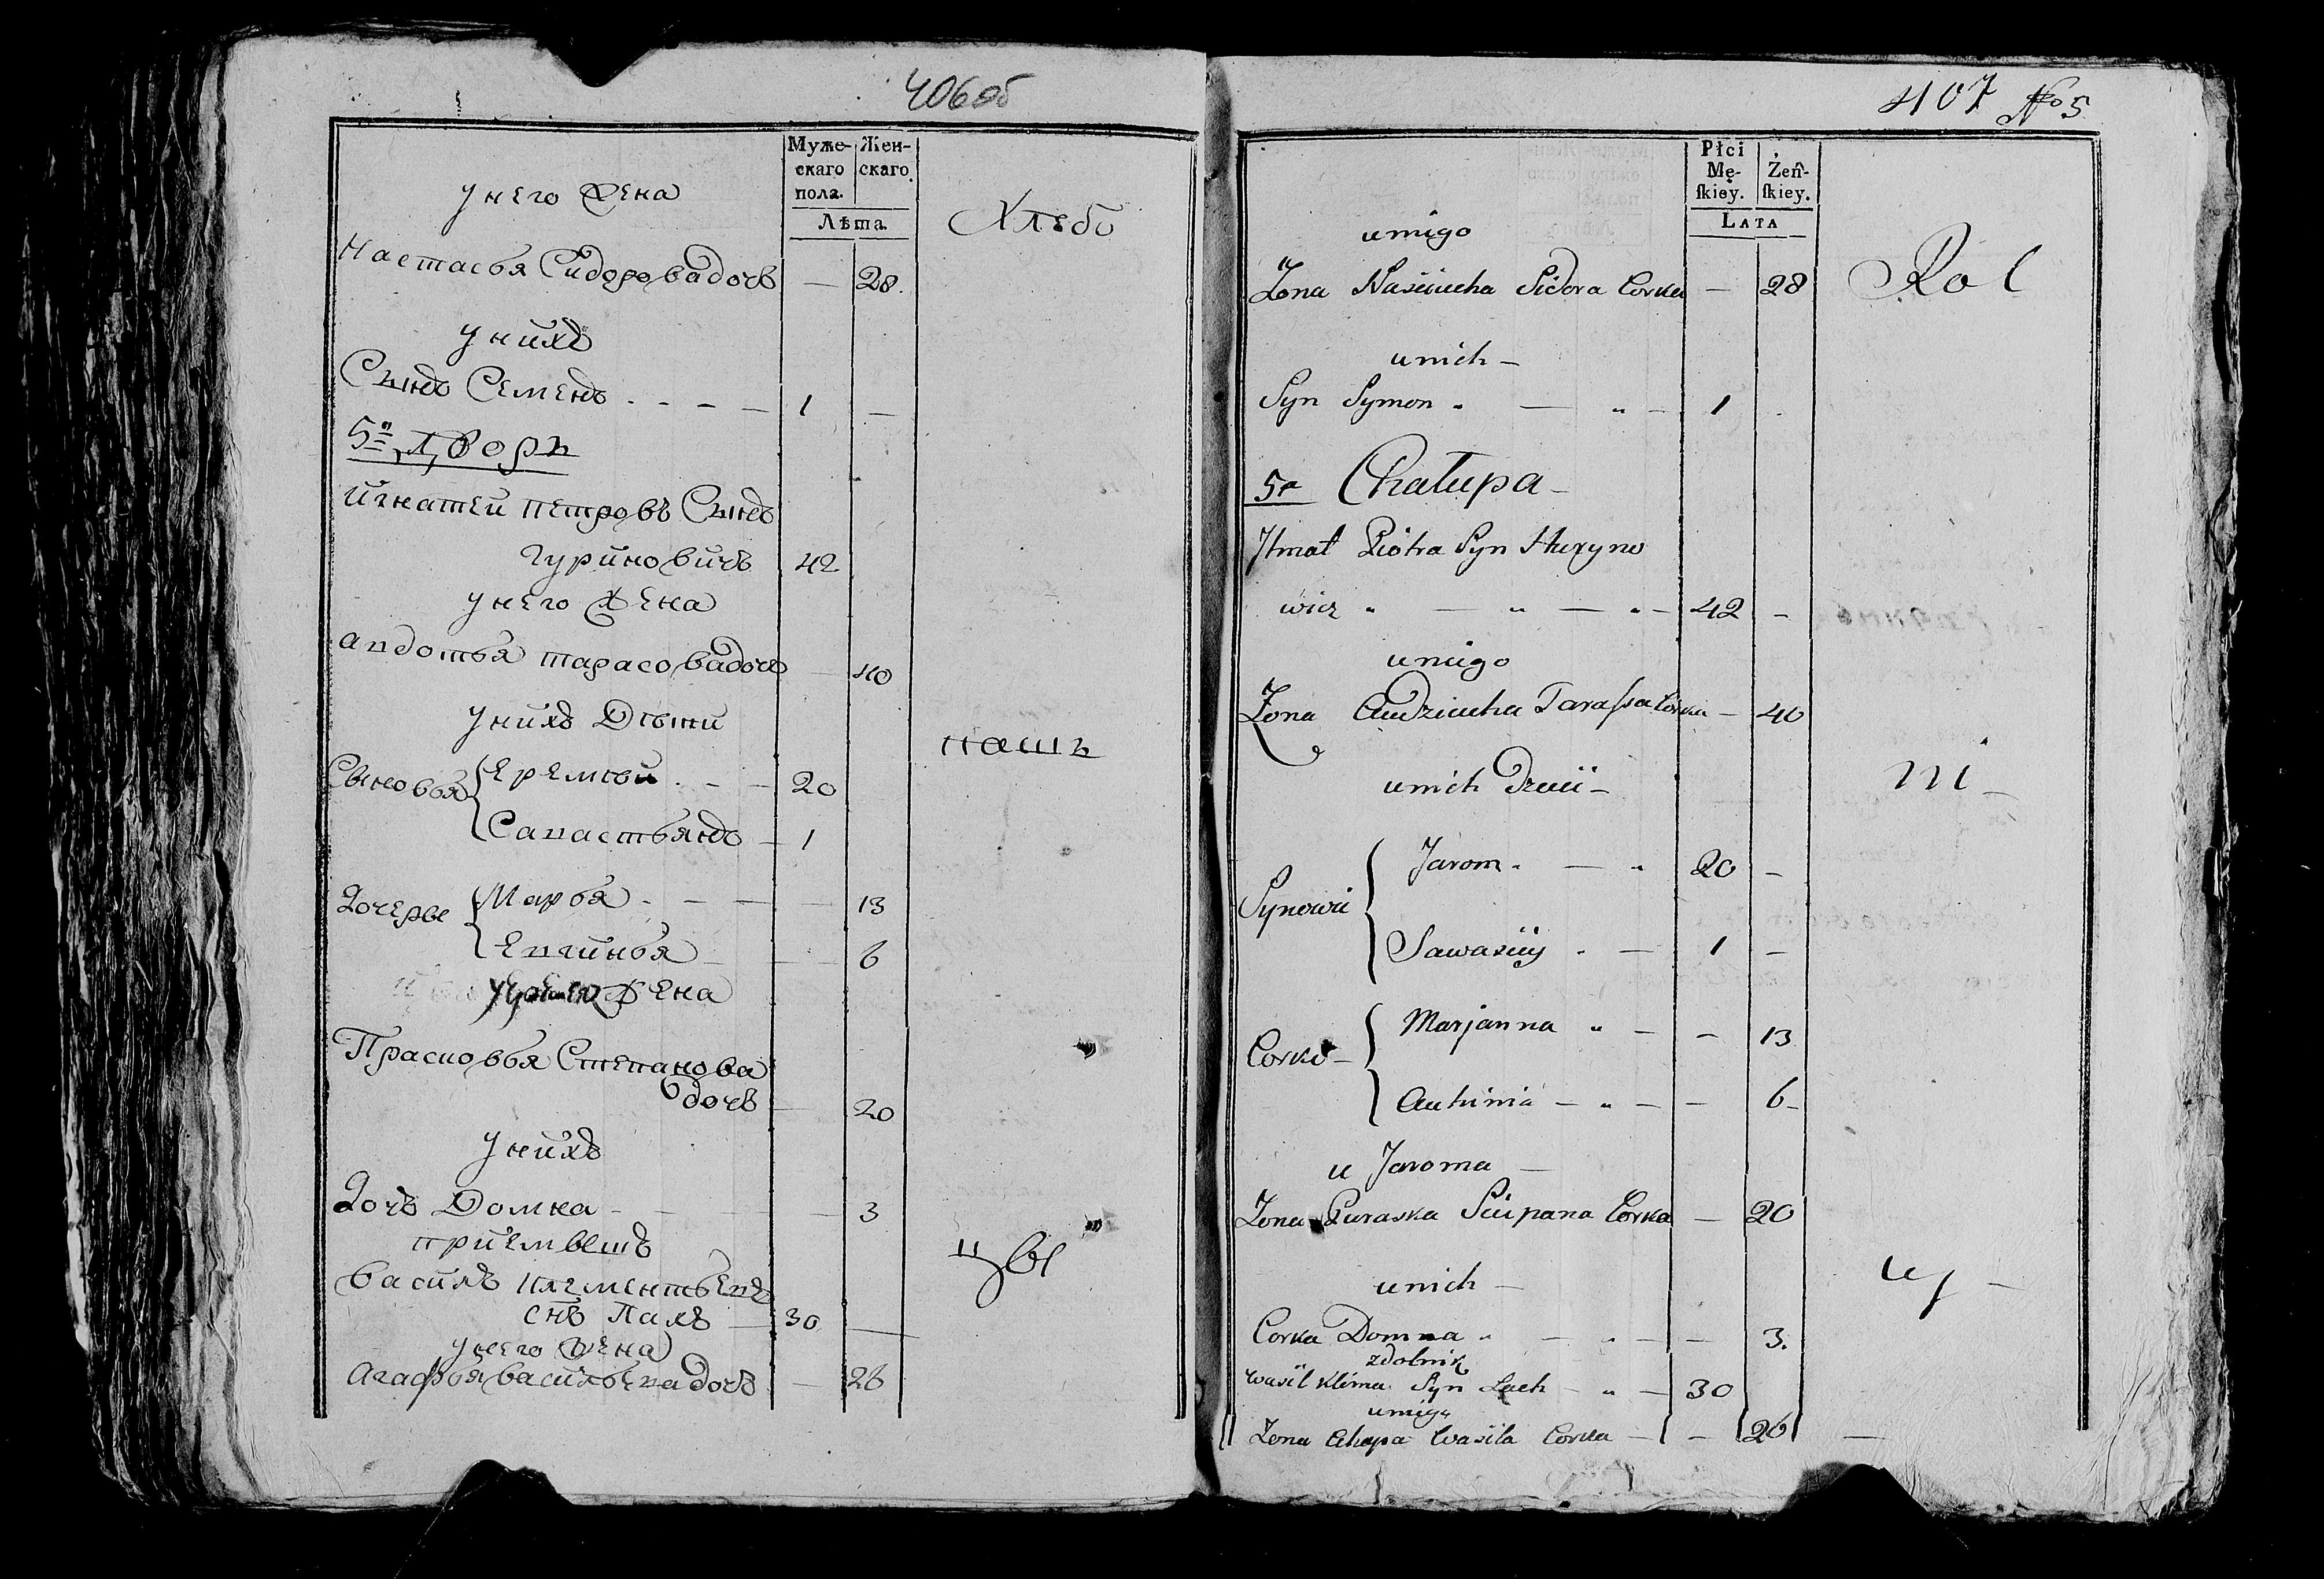 406 об
Муже-
скаго
пола.
Жен-
скаго.
Лѣта.
у него Жена
Настасья Сидорова дочь — 28.
Хлебо
у нихъ
Сынъ Семенъ . - - — 1 —
5й Дворъ
Игнатей петровъ Сынъ
Гуриновичъ 42
у него Жена
авдотья тарасова дочь — 40
у нихъ Дѣти
пашъ
Сыновья { Еремѣй . - — 20
Савастьянъ — 1
Дочерье { Марья . - — — 13
Евгинья — — 6
Жена
Прасковья Степанова
дочь — 20
у нихъ
Дочь Домна - — — 3
приемышъ
цвы
василь клементьевъ
снъ Лахъ — 30
у него жена
агафья васильева дочь — 26
407 №5
Płci
Mę-
skiey.
Żeń-
skiey.
LATA
u niego
Zona Naściucha Sidora Corka — 28
Rol
u nich —
Syn Symon „ — „ — 1 -
5a Chałupa —
Ihnat Piotra Syn Huryno
wicz „ — „ — „ — 42 -
u niego
Zona Audziucha Tarassa Corka — 40
u nich Dzieci —
ni —
Synowie { Jarom „ — „ 20 -
Sawaściiy . — 1 —
Corki — { Marjanna „ — - 13
Auhinia — „ — — 6 -
u Jaroma —
Zona Paraska Sciepana Corka — 20
u nich —
cy —
Corka Domna „ — „ — — 3.
zdolnik
Wasil Klima Syn Lach — „ — 30
u niego
Zona Ahapa Wasila Corka — - 26 —